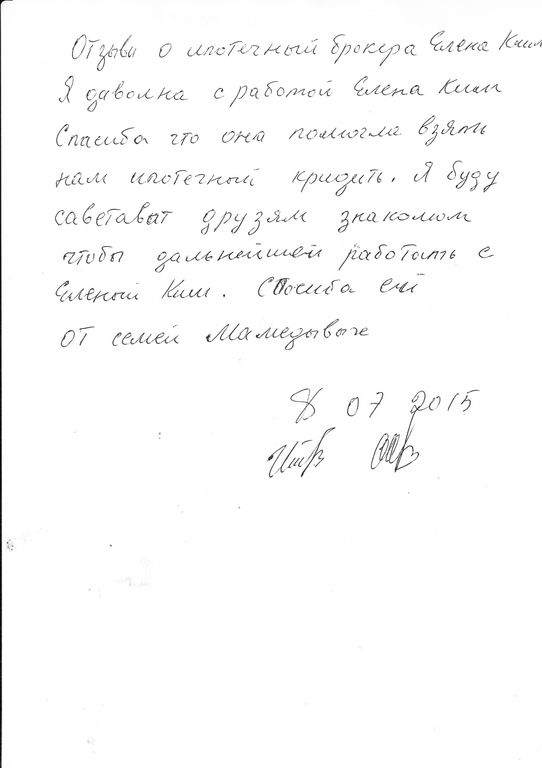 Отзыви о ипотечный брокера Елена Ким
Я даволна с работой Елена Ким
Спасиба что она помогла взять
нам ипотечный кридить. Я буду
саветават друзям знаком
чтобы дальнейшей работать с
Еленой Ким. Спосиба ей
от семей Мамедывыче
8 07 2015